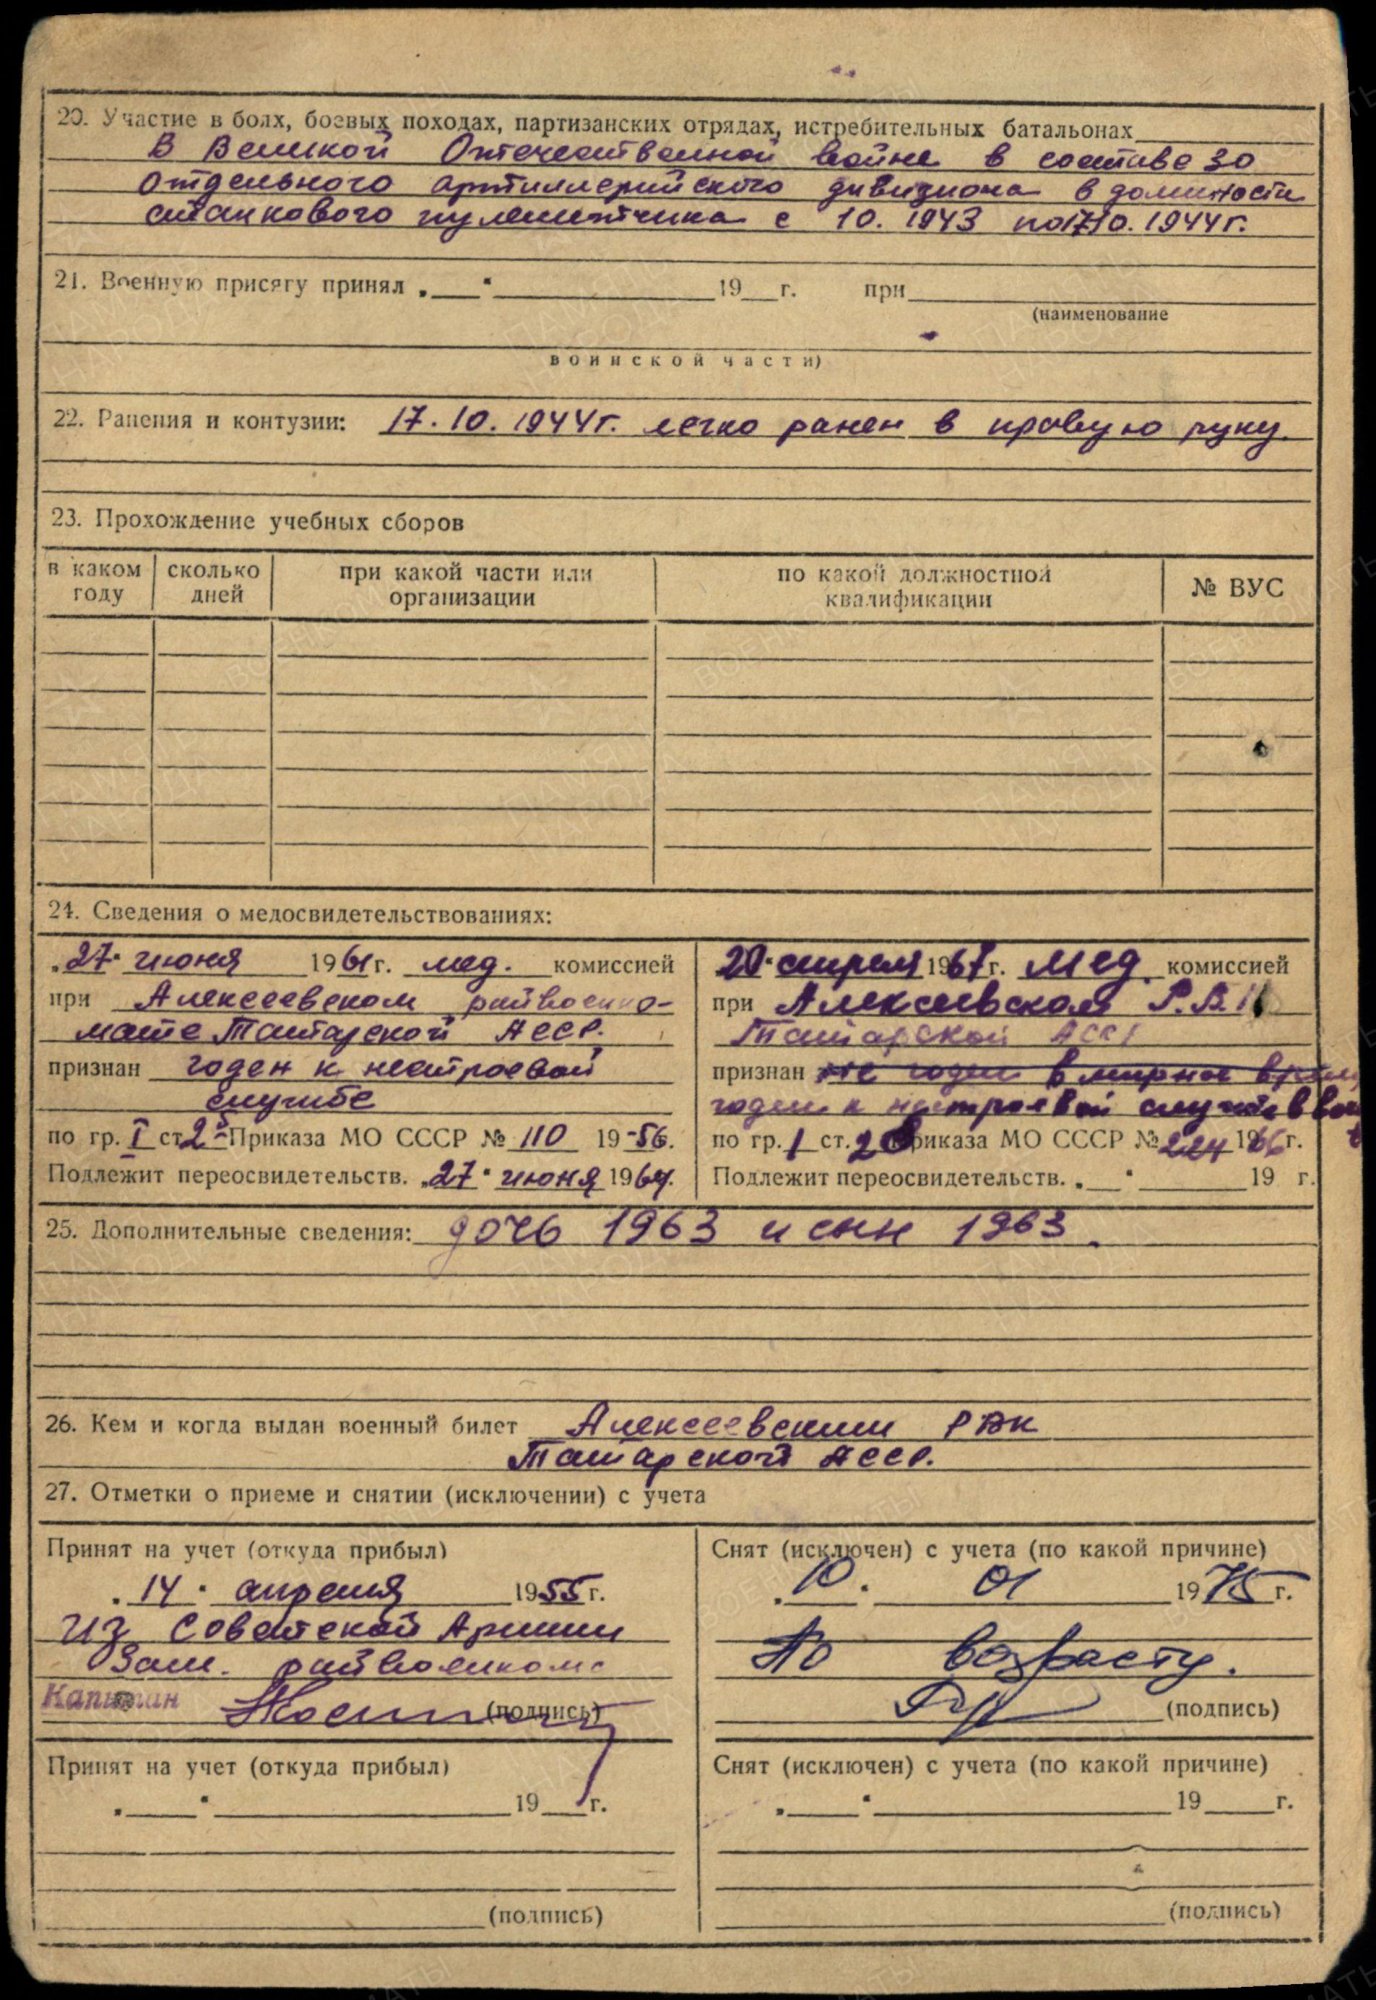 20. Участие в боях, боевых походах, партизанских отрядах, истребительных батальонах
В Великой Отечественной войне в составе 30
отдельного артиллерийского дивизиона в должности
станкового пулеметчика с 10.1943 по 17.10.1944г.
21. Военную присягу принял „ “ 19 г. при
(наименование
воинской части)
22. Ранения и контузии: 17.10.1944г. легко ранен в правую руку.
23. Прохождение учебных сборов
в каком году сколько дней при какой части или организации по какой должностной квалификации № ВУС
24. Сведения о медосвидетельствованиях:
„27“ июня 1961г. мед. комиссией
при Алексеевском райвоенко-
мате Татарской АССР.
признан годен к нестроевой
службе
по гр. I ст. 2 Приказа МО СССР № 110 1956.
Подлежит переосвидетельств. „27“ июня 1964.
20“ апреля 1967г. мед. комиссией
при Алексеевском Р.В.К
Татарской АССР
признан не годен в мирное время
годен к нестроевой службе в
по гр. 1 ст. Приказа МО СССР № 224 1966г.
Подлежит переосвидетельств. „ “ 19 г.
25. Дополнительные сведения: дочь 1963 и сын 1963.
26. Кем и когда выдан военный билет Алексеевским РВК
Татарской АССР.
27. Отметки о приеме и снятии (исключении) с учета
Принят на учет (откуда прибыл)
„14“ апреля 1955г.
из Советской Армии
Зам. райвоенкома
Капитан (подпись)
Снят (исключен) с учета (по какой причине)
„10“ 01 1975г.
По возрасту.
(подпись)
Принят на учет (откуда прибыл)
„ “ 19 г.
(подпись)
Снят (исключен) с учета (по какой причине)
„ “ 19 г.
(подпись)